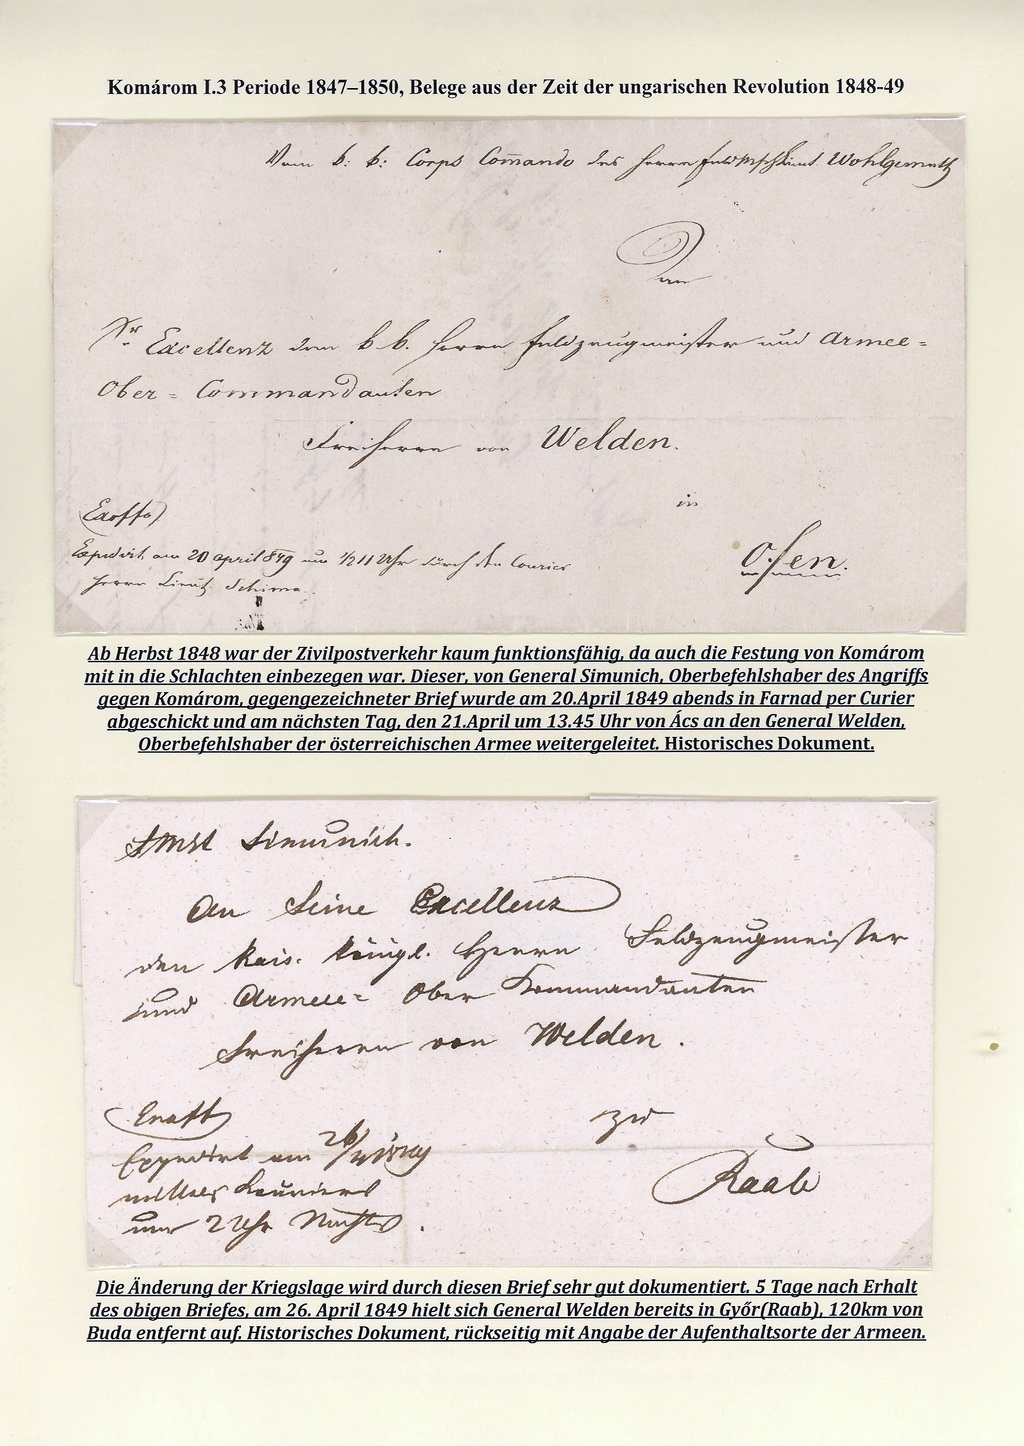 Komárom I.3 Periode 1847–1850, Belege aus der Zeit der ungarischen Revolution 1848-49
Vom k: k: Corps Commando des Herrn Wohlgemuth
An
Sr Excellenz dem k. k. Herrn Feldzeugmeister und Armee=
Ober = Commandanten
Freiherrn von Welden.
in
Ofen.
Expedirt am 20 april 849 um ½ 11 Uhr durch den Courier
Herrn Lieut. Schima
Ab Herbst 1848 war der Zivilpostverkehr kaum funktionsfähig, da auch die Festung von Komárom
mit in die Schlachten einbezegen war. Dieser, von General Simunich, Oberbefehlshaber des Angriffs
gegen Komárom, gegengezeichneter Brief wurde am 20.April 1849 abends in Farnad per Curier
abgeschickt und am nächsten Tag, den 21.April um 13.45 Uhr von Ács an den General Welden,
Oberbefehlshaber der österreichischen Armee weitergeleitet. Historisches Dokument.
Simunich.
An Seine Excellenz
den kais. königl. Herrn Feldzeugmeister
und Armee= Ober Kommandanten
Freiherrn von Welden.
zu
Raab
Expedirt am 26/4
mittels Kouriers
um 2 Uhr Nachts.
Die Änderung der Kriegslage wird durch diesen Brief sehr gut dokumentiert. 5 Tage nach Erhalt
des obigen Briefes, am 26. April 1849 hielt sich General Welden bereits in Győr(Raab), 120km von
Buda entfernt auf. Historisches Dokument, rückseitig mit Angabe der Aufenthaltsorte der Armeen.